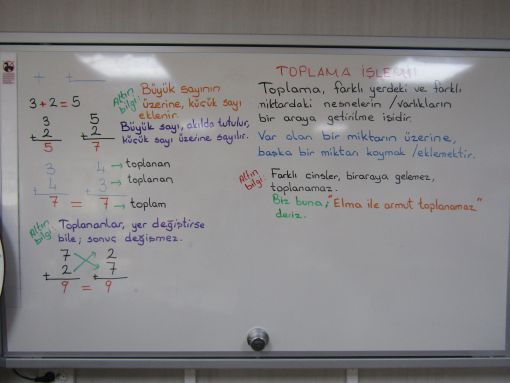 + +
3+2=5
Altın bilgi: Büyük sayının
üzerine, küçük sayı
eklenir.
3 5
+ 2 + 2
5 7
Büyük sayı, akılda tutulur,
küçük sayı üzerine sayılır.
3 4 → toplanan
+ 4 + 3 → toplanan
7 = 7 → toplam
Altın bilgi: Toplananlar, yer değiştirse
bile; sonuç değişmez.
7 2
+ 2 + 7
9 = 9
TOPLAMA İŞLEMİ
Toplama, farklı yerdeki ve farklı
miktardaki nesnelerin /varlıkların
bir araya getirilme işidir.
Var olan bir miktarın üzerine,
başka bir miktarı koymak /eklemektir.
Altın bilgi: Farklı cinsler, biraraya gelemez,
toplanamaz.
Biz buna; "Elma ile armut toplanamaz"
deriz.